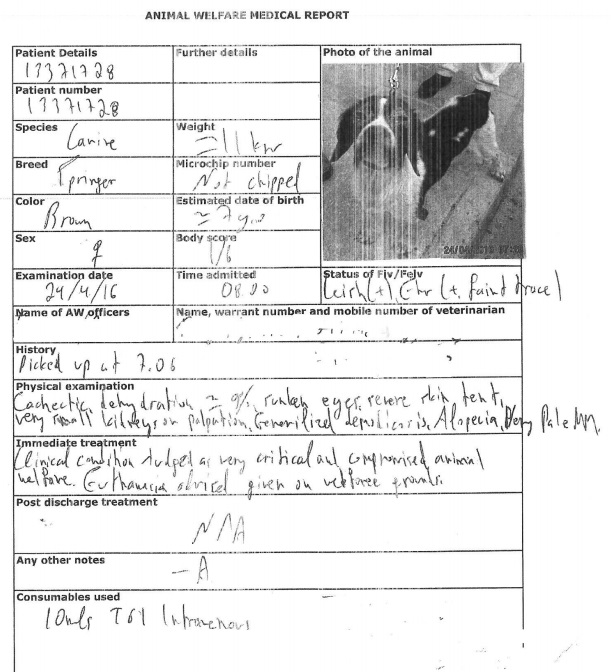 ANIMAL WELFARE MEDICAL REPORT
Patient Details
13371728
Further details
Photo of the animal
Patient number
13371728
Species
Canine
Weight
≈ 11 kg
Breed
Springer
Microchip number
Not chipped
Color
Brown
Estimated date of birth
≈ 7 y
Sex
♀
Body score
1/6
Examination date
24/4/16
Time admitted
08.00
Status of Fiv/Felv
Leish (+), Ehr (+ faint trace)
Name of AW officers
Name, warrant number and mobile number of veterinarian
History
Picked up at 7.06
Physical examination
Cachectic, dehydration ≈ 9%, sunken eyes, severe skin tent,
very small kidneys on palpation, Generilized demodicosis, Alopecia, Very Pale MM.
Immediate treatment
Clinical condition judged as very critical and compromised animal
welfare. Euthanasia advised given on welfare grounds.
Post discharge treatment
N/A
Any other notes
Consumables used
10mls T61 Intravenous